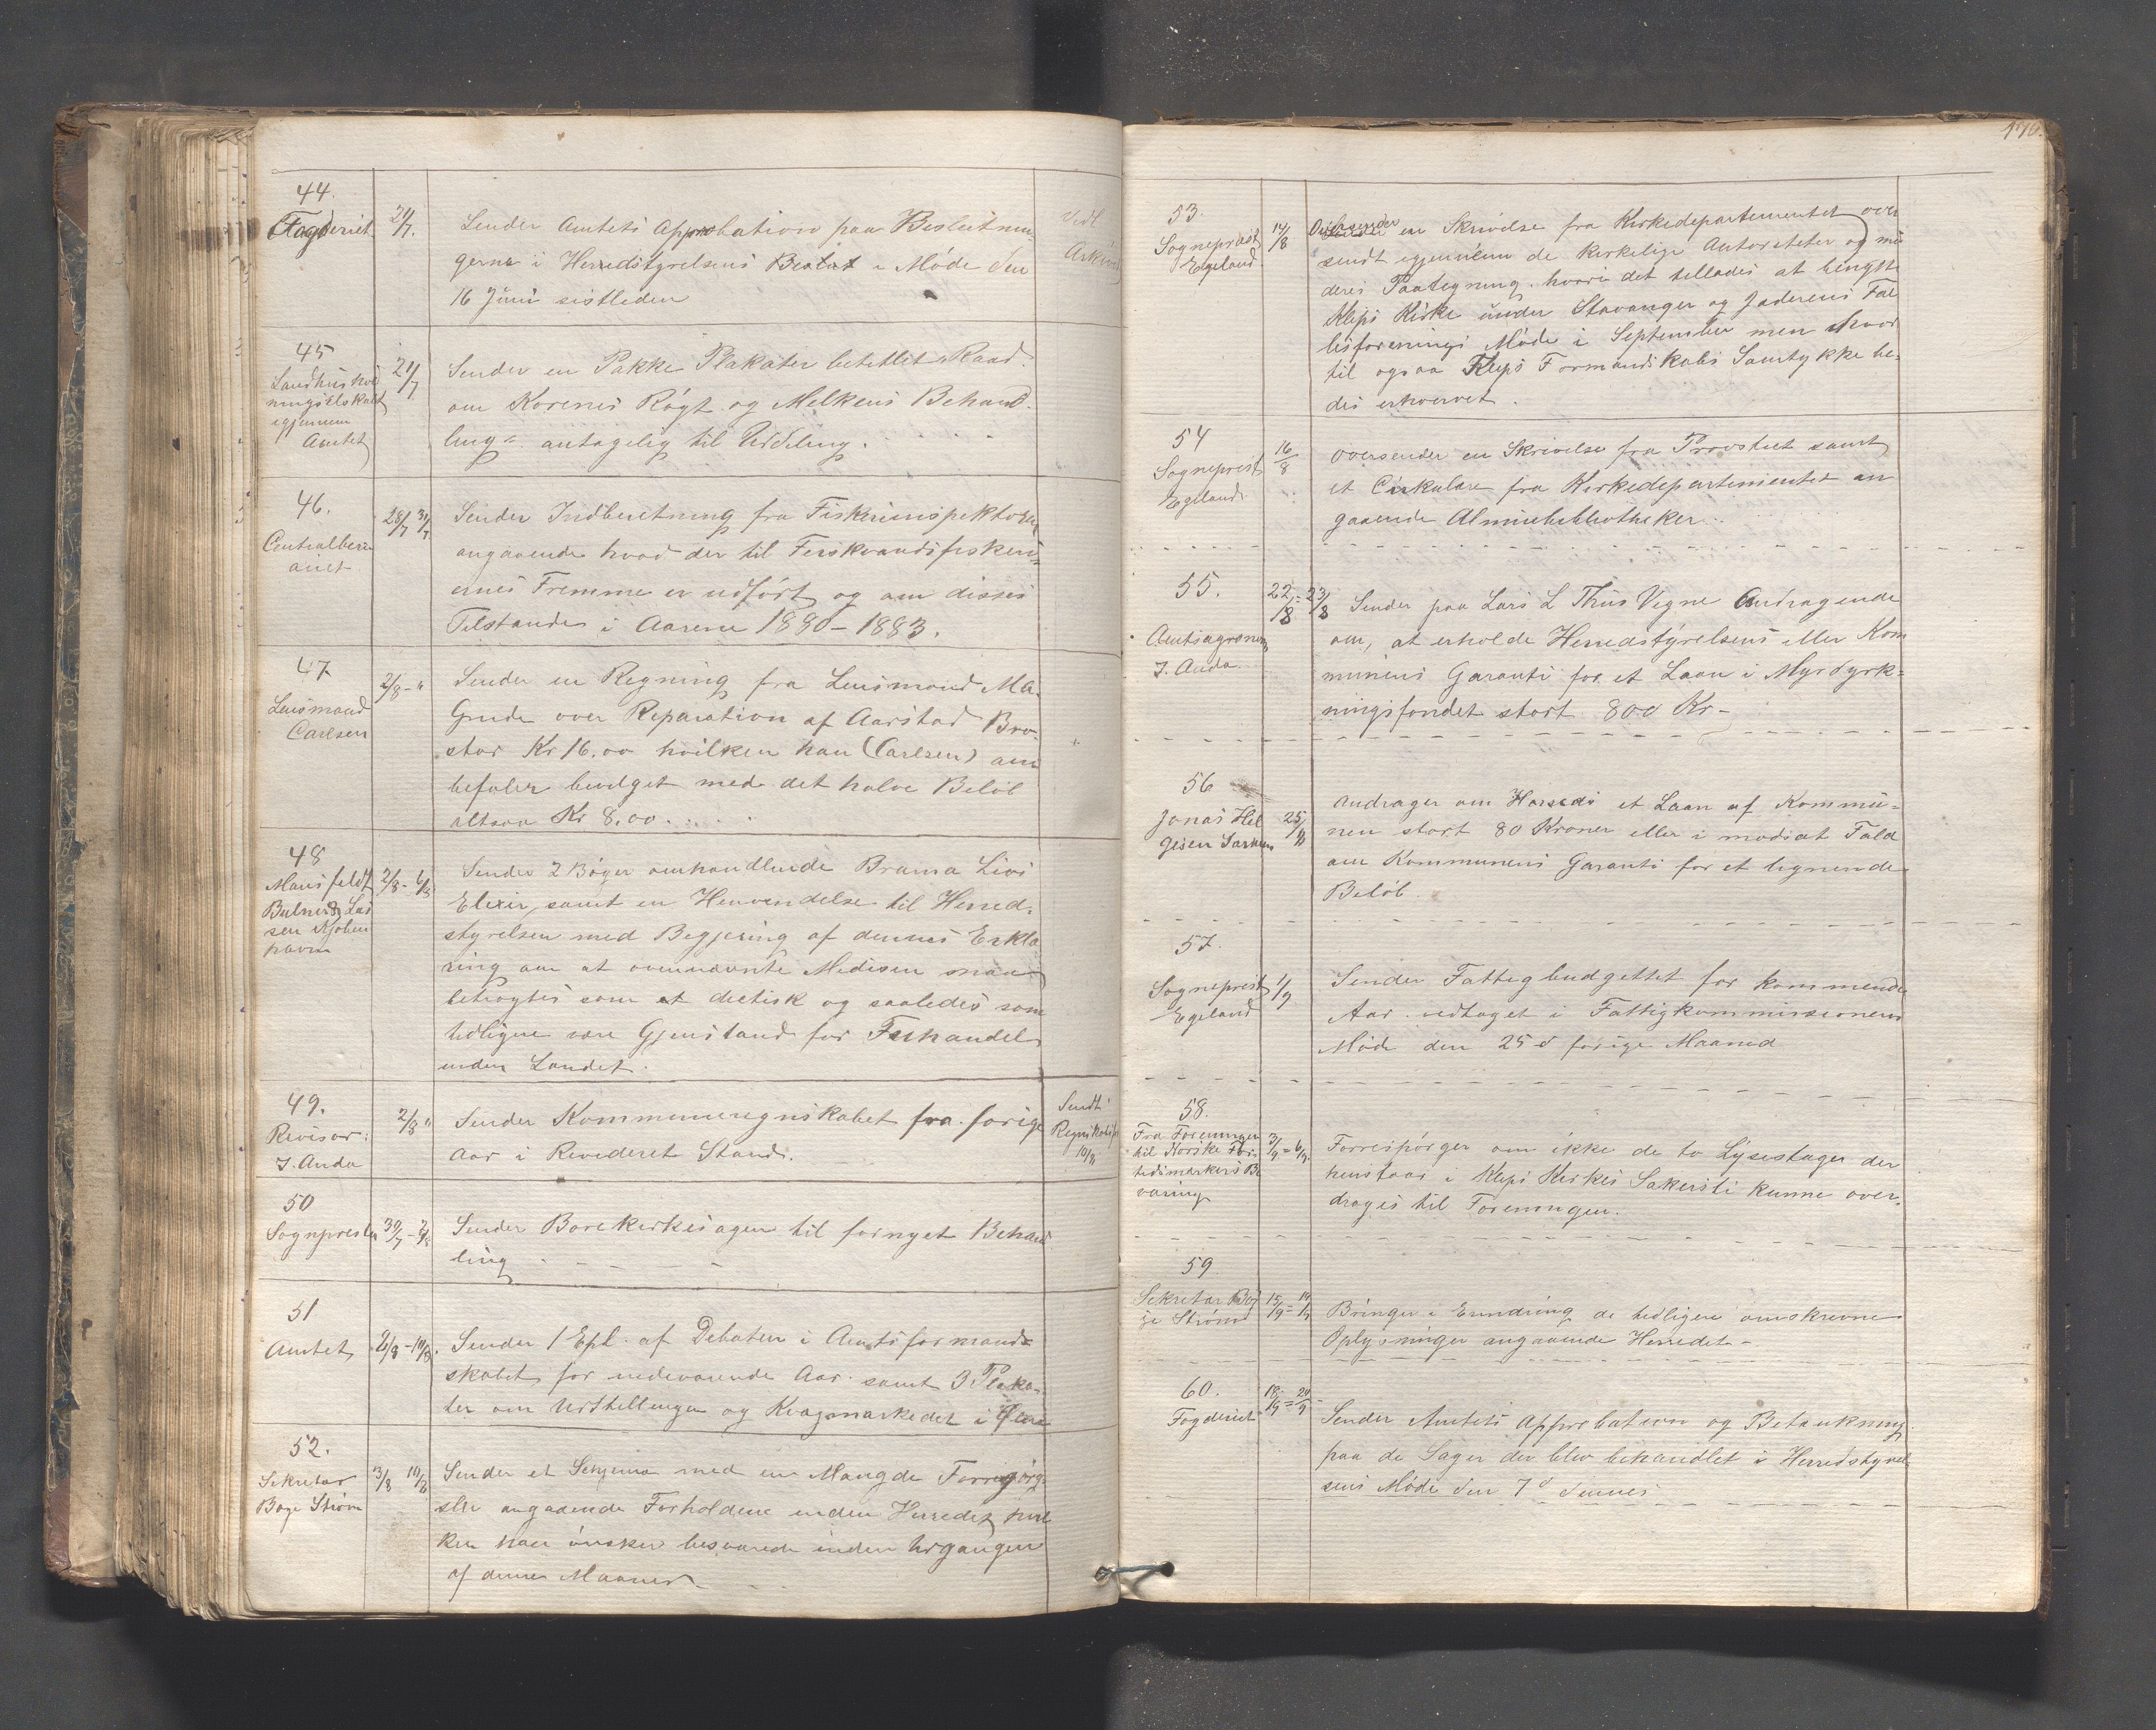 44.
Fogderiet 21/7.
Sender Amtets Approbation paa Beslutnin-
gerne i Herredstyrelsens Møde den
16 Juni sistleden
Vedl
Arkivet
45
Landhushold
ningselskabet
igjennem
Amtet
21/7
Sender en Pakke Plakater betetlet "Raad
om Korenes Røgt og Melkens Behand-
ling" antagelig til Uddeling.
46.
Centralbery
auet
28/7 31/7
Sender Indberetning fra Fiskeriinspektøren
angaaende hvad der til Ferskvandsfiskeri-
ernes Fremme er udført og om disses
Tilstande i Aarene 1880-1883.
47
Lensmand
Carlsen
2/8 - "
Sender en Regning fra Lensmand M A
Grude over Reparation af Aarstad Bro
stor Kr 16.00 hvilken han (Carlsen) an
befaler bevilget med det halve Beløb
altsaa Kr 8.00.
48
Mansfeldt
Bulner & Las
sen Kjøben
havn
2/8 - 6/8
Sender 2 Bøger omhandlende Brama Livs
Elixir, samt en Henvendelse til Herred-
styrelsen med Begjering af dennes Erklæ
ring om at ovennævnte Medisin maa
betragtes som et dietisk og saaledes som
tidligere være Gjenstand for Frihandel
inden Landet.
49.
Revisor:
J. Anda
2/8 "
Sender Kommuneregnskabet fra forige
Aar i Revideret Stand.
Sendt
10/8
50
Sognpresten
30/7 - 2/8
Sender Borekirkesagen til fornyet Behand
ling
51
Amtet
2/8 - 10/8.
Sender 1 Expl. af Debatten i Amtsformand-
skabet for nedeværende Aar samt 3 Plaka-
ter om Utstillingen og Kvægmarkedet i
52.
Sekretær
Boge Strøm
3/8 10/8
Sender et Schjema med en Mængde Forrespørg-
sler angaaende Forholdene inden Herredet, hvil
ken han ønsker besvarede inden Udgangen
af denne Maaned.
170.
53.
Sogneprest
Egeland
14/8
Oversender en Skrivelse fra Kirkedepartementet over
sendt igjennem de kirkelige Autoriteter og med
deres Paategning, hvori det tillades at benytte
Kleps Kirke under Stavanger og Jæderens Fæl
lesforenings Møde i September men hvor
til ogsaa Kleps Formandskabs Samtykke be-
des erhvervet.
54
Sogneprest
Egeland
16/8
Oversender en Skrivelse fra Provstiet samt
et Cirkulære fra Kirkedepartementet an
gaaende Almuebibliotheker.
55.
Amtsagronom
J. Anda.
22/8 = 23/8
Sender paa Lars L Thus Vegne Andragende
om, at erholde Herredstyrelsens eller Kom
munens Garanti for et Laan i Myrdyrk-
ningsfondet stort 800 Kr -
56
Jonas Hel
gesen
25/8
Andrager om et Laan af Kommu-
nen stort 80 Kroner eller i modsat Fald
om Kommunens Garanti for et lignende
Beløb.
57.
Sogneprest
Egeland
1/9
Sender Fattigbudgettet for kommende
Aar vedtaget i Fattigkommissionens
Møde den 25d forige Maaned
58.
Fra Foreningen
til Norske For-
tidsmærkers Be
varing
3/9 = 6/9
Forrespørger om ikke de to Lysestager der
henstaar i Kleps Kirkes Sakersti kunne over-
drages til Foreningen.
59
Sekretær Bog
ge Strøm
15/9 = 17/9
Bringer i Erindring de tidligere omskrevne
Oplysninger angaaende Herredet -
60.
Fogderiet
18/9 = 20/9
Sender Amtets Approbation og Betænkning
paa de Sager der blev behandlet i Herredstyrel
sens Møde den 7d dennes